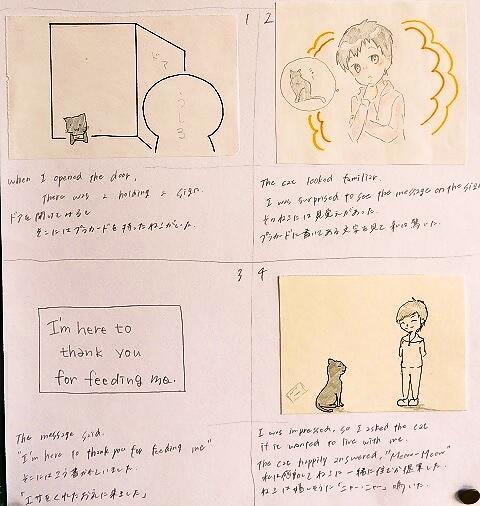 1
ドア
うしろ
When I opened the door,
there was a holding a sign.
ドアを開けてみると
そこにはプラカードを持ったねこがいた。
2
The cat looked familiar.
I was surprised to see the message on the sign
そのねこには見覚えがあった。
プラカードに書いてある文字を見て私は驚いた。
3
I'm here to
thank you
for feeding me.
The message said.
"I'm here to thank you for feeding me"
そこにはこう書かれていました。
「エサをくれたお礼に来ました」
4
I was impressed, so I asked the cat
if it wanted to live with me.
the cat happily answered, "Meow-Meow"
私は感動してねこに一緒に住むか提案した。
ねこは嬉しそうに「ニャー、ニャー」鳴いた。